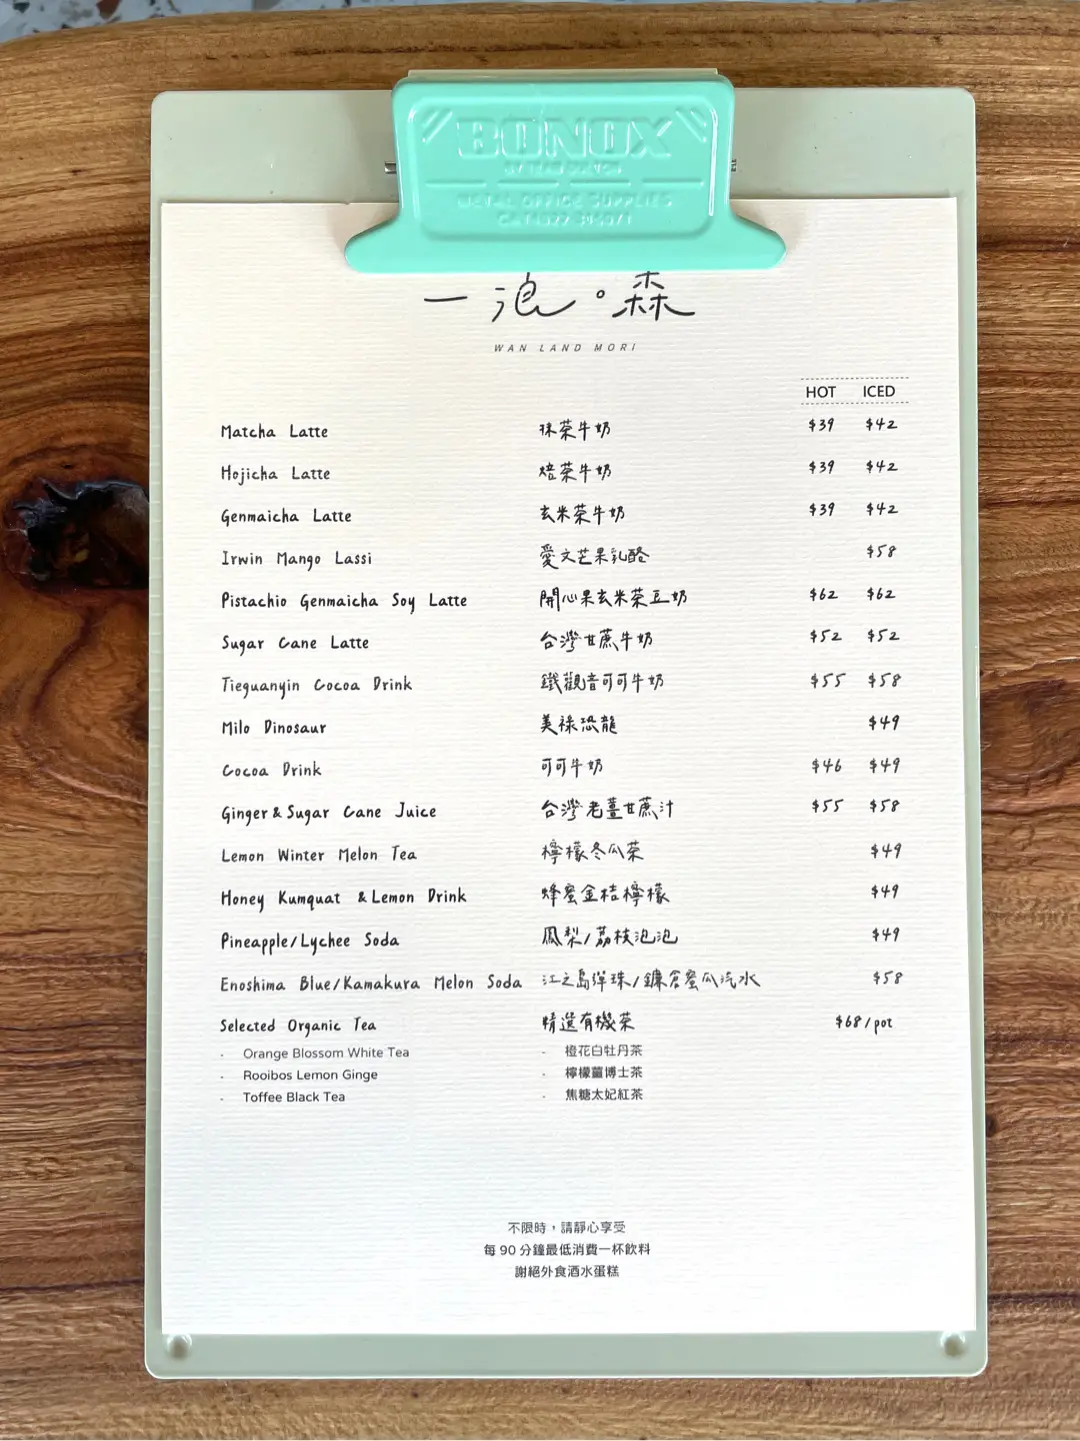 BONOX
METAL OFFICE SUPPLIES
一浪。森
WAN LAND MORI
HOT ICED
Matcha Latte 抹茶牛奶 $39 $42
Hojicha Latte 焙茶牛奶 $39 $42
Genmaicha Latte 玄米茶牛奶 $39 $42
Irwin Mango Lassi 愛文芒果乳酪 $58
Pistachio Genmaicha Soy Latte 開心果玄米茶豆奶 $62 $62
Sugar Cane Latte 台灣甘蔗牛奶 $52 $52
Tieguanyin Cocoa Drink 鐵觀音可可牛奶 $55 $58
Milo Dinosaur 美祿恐龍 $49
Cocoa Drink 可可牛奶 $46 $49
Ginger & Sugar Cane Juice 台灣老薑甘蔗汁 $55 $58
Lemon Winter Melon Tea 檸檬冬瓜茶 $49
Honey Kumquat & Lemon Drink 蜂蜜金桔檸檬 $49
Pineapple/Lychee Soda 鳳梨/荔枝泡泡 $49
Enoshima Blue/Kamakura Melon Soda 江之島彈珠/鐮倉蜜瓜汽水 $58
Selected Organic Tea 精選有機茶 $68/pot
- Orange Blossom White Tea - 橙花白牡丹茶
- Rooibos Lemon Ginge - 檸檬薑博士茶
- Toffee Black Tea - 焦糖太妃紅茶
不限時，請靜心享受
每 90 分鐘最低消費一杯飲料
謝絕外食酒水蛋糕